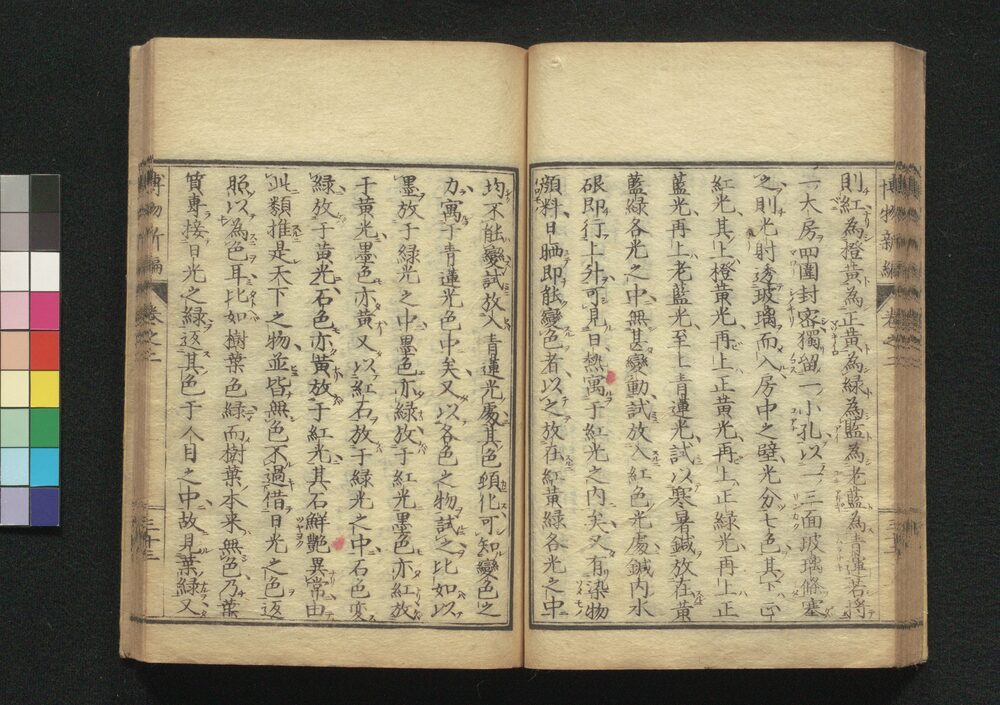 博物新編 卷之二 三十二
則紅為橙黃為正黃為綠為藍為老藍為青蓮若將
一大房四圍封密獨留一小孔以一三面玻璃條塞
之則光射透玻璃而入房中之壁光分七色其下正
紅光其上橙黃光再上正黃光再上正綠光再上正
藍光再上老藍光至上青蓮光試以寒暑鍼放在黃
藍綠各光之中無甚變動試放入紅色光處鍼內水
銀即行上升可見日熱寓于紅光之內矣又有染物
顏料日晒即能變色者以之放在紅黃綠各光之中
均不能變試放入青蓮光處其色頓化可知變色之
力寓于青蓮光色中矣又以各色之物試之比如以
墨放于綠光之中墨色亦綠放于紅光墨色亦紅放
于黃光墨色亦黃又以紅石放于綠光之中石色変
綠放于黃光石色亦黃放于紅光其石鮮艷異常由
此類推是天下之物並皆無色不過借日光之色返
照以為色耳比如樹葉色綠而樹葉本來無色乃葉
質專接日光之綠返其色于人目之中故見葉綠又
博物新編 卷之二 三十三